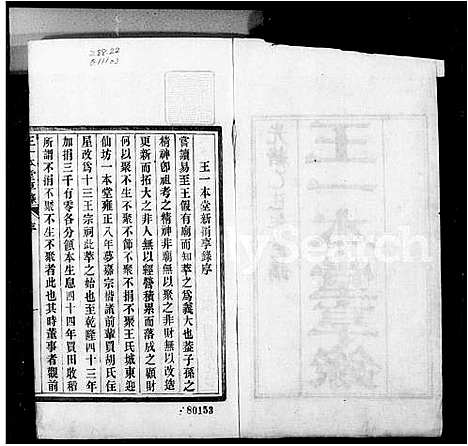 288.22
王一本堂新捐享錄序
嘗讀易至王假有廟而知萃之爲義大也蓋子孫之
精神卽祖考之精神非廟易以聚之非財無以改造
更新而拓大之非人無以經營積累而落成之顧財
何以聚不生不聚不節不聚不捐不聚王氏城東迎
仙坊一本堂雍正八年夢嘉宗偕諸前輩買胡氏住
屋改爲十三王宗祠此萃之始也至乾隆四十三年
加捐三千有零各分領本生息四十四年買田收稻
所謂不捐不生不聚者此也其時董事者觀前
王一本堂享錄
序
80153
MySearch
王一本堂享錄